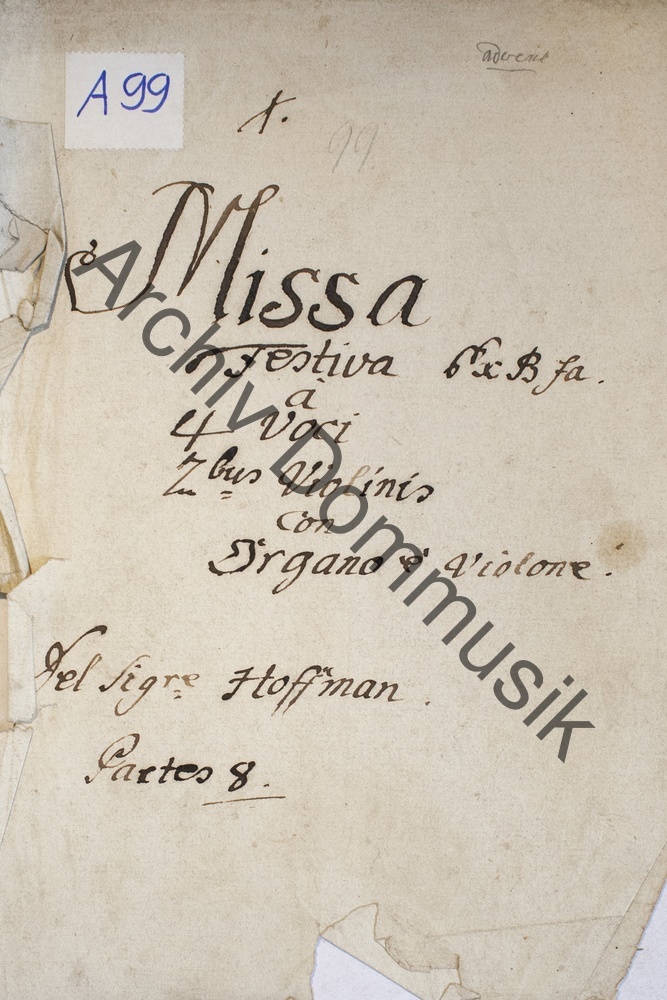 A 99
99.
Missa
Festiva 6 x B fa.
à
4 Voci
2bus Violinis
con
Organo è Violone.
Del Sigre Hoffman.
Partes 8.
Archiv Dommusik